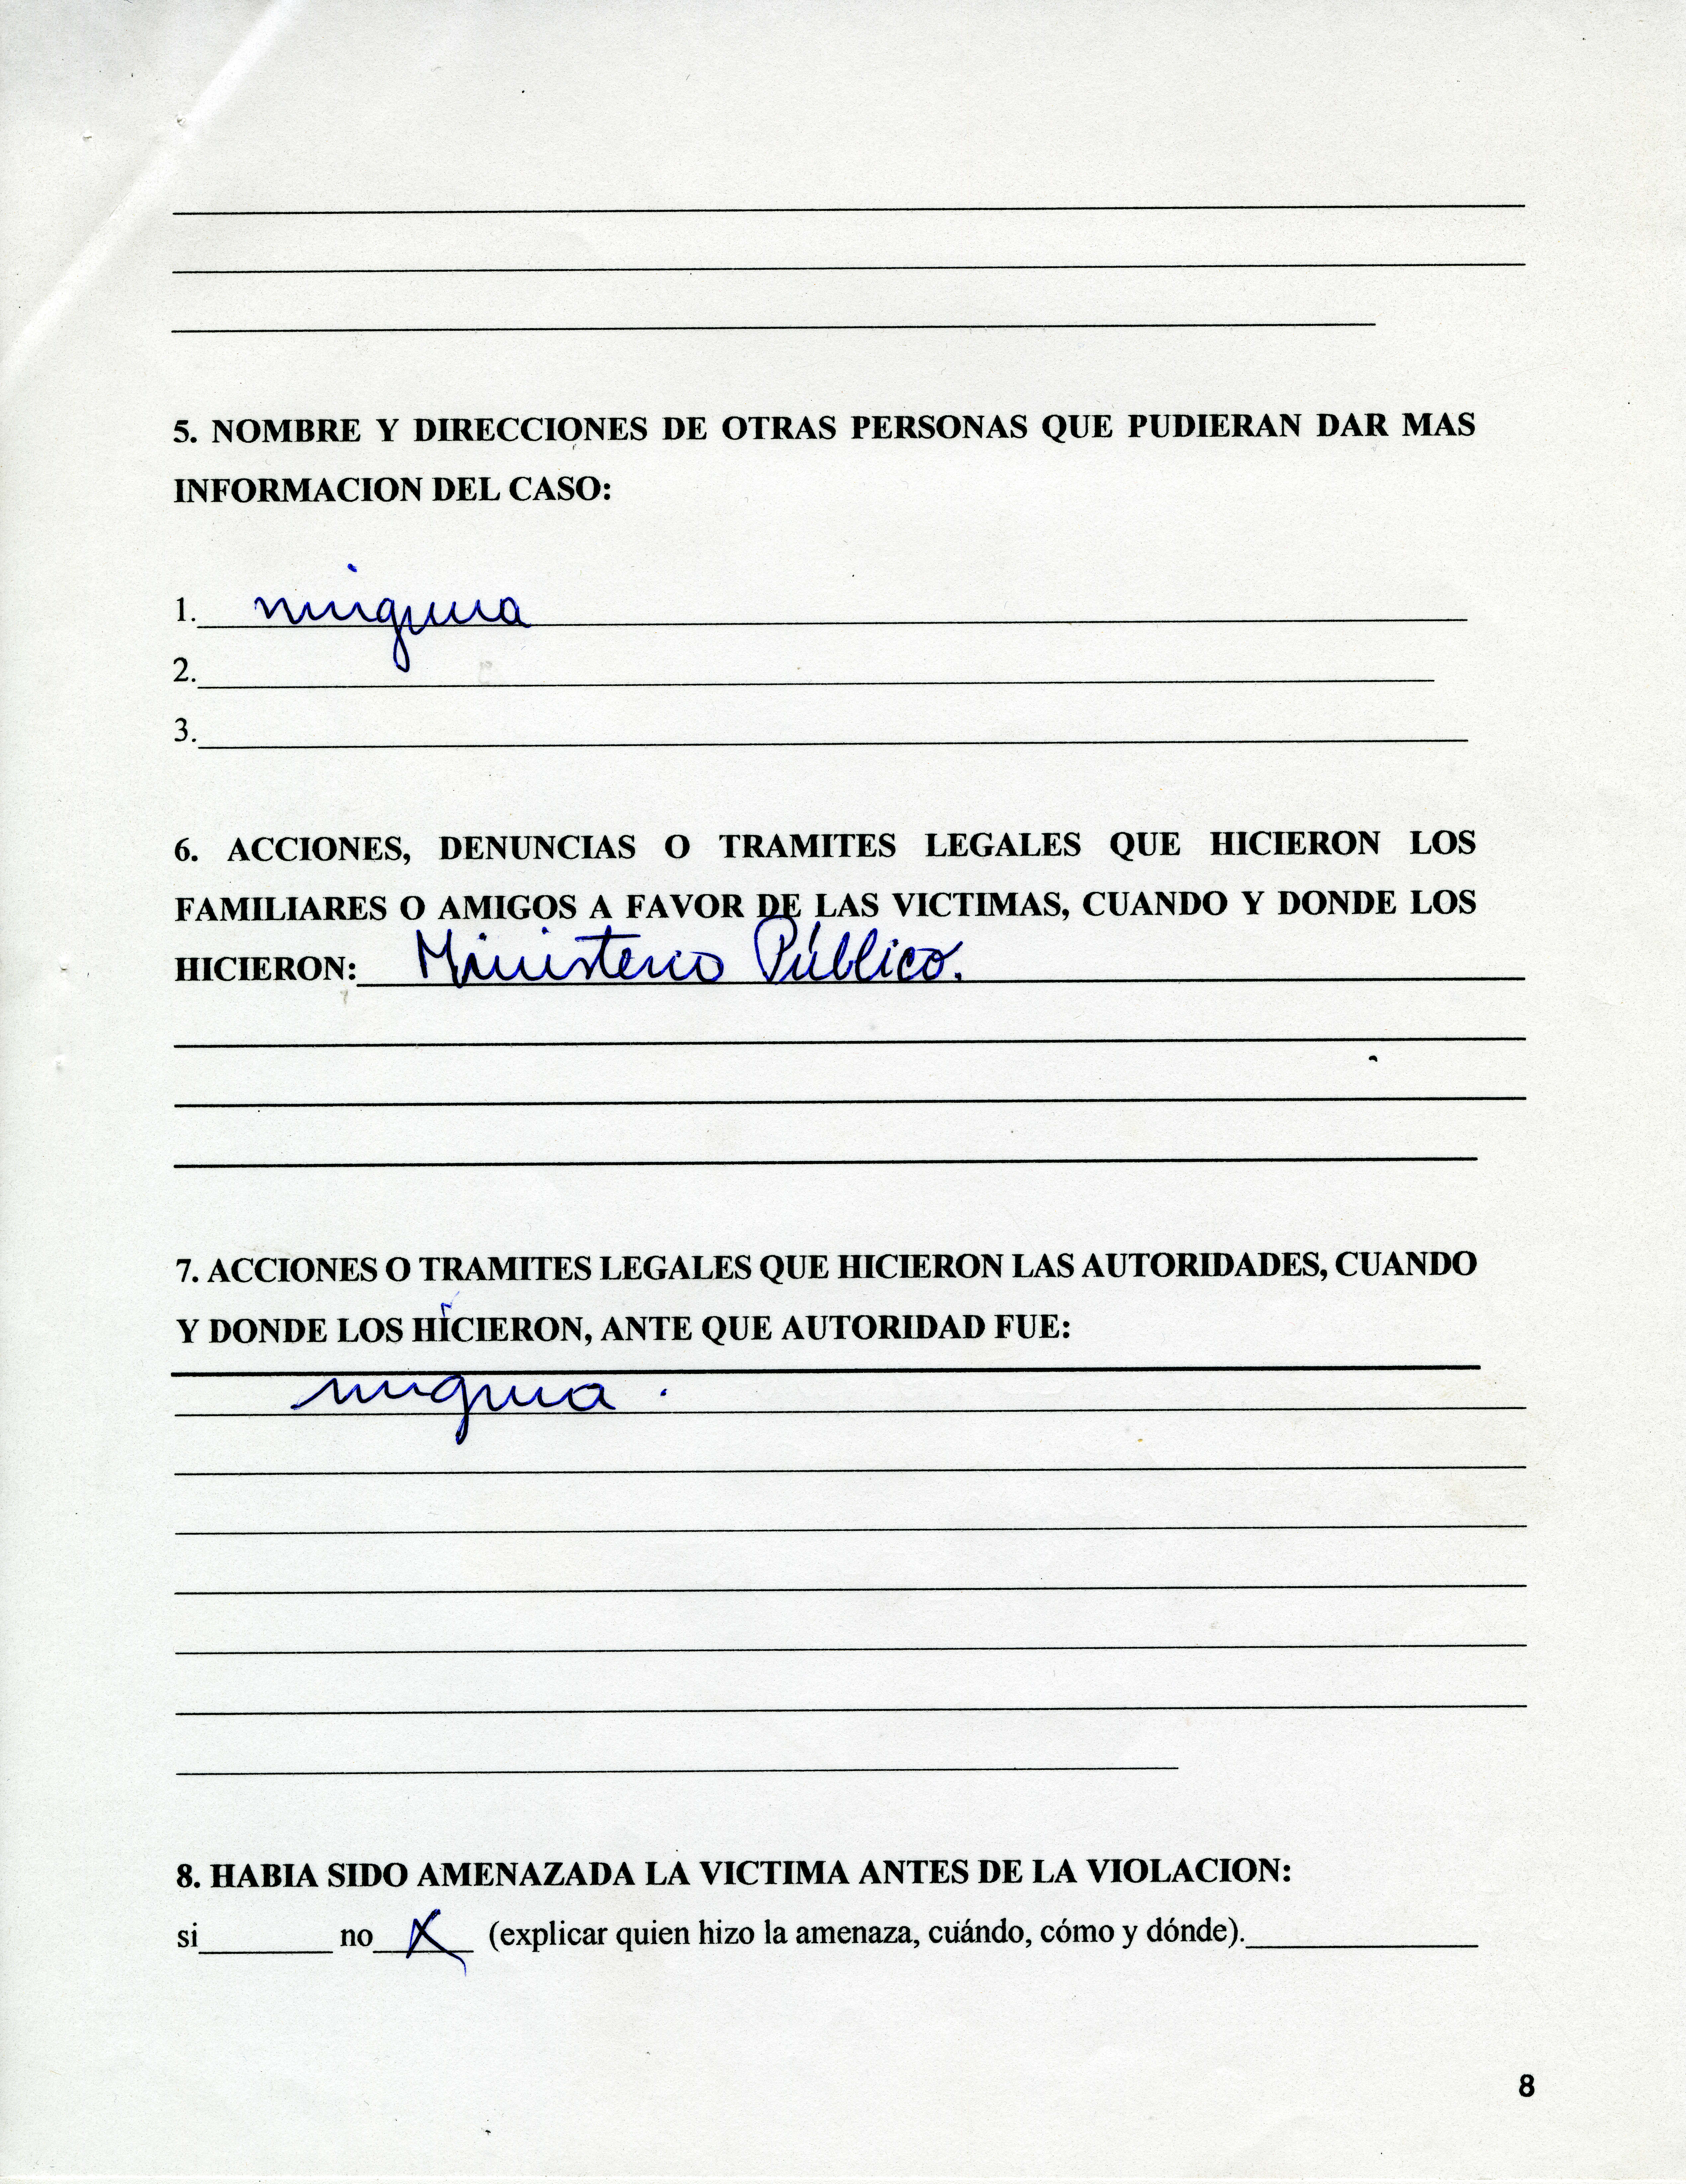 5. NOMBRE Y DIRECCIONES DE OTRAS PERSONAS QUE PUDIERAN DAR MAS
INFORMACION DEL CASO:
1. ninguna
2.
3.
6. ACCIONES, DENUNCIAS O TRAMITES LEGALES QUE HICIERON LOS
FAMILIARES O AMIGOS A FAVOR DE LAS VICTIMAS, CUANDO Y DONDE LOS
HICIERON: Ministerio Público.
7. ACCIONES O TRAMITES LEGALES QUE HICIERON LAS AUTORIDADES, CUANDO
Y DONDE LOS HICIERON, ANTE QUE AUTORIDAD FUE:
ninguna.
8. HABIA SIDO AMENAZADA LA VICTIMA ANTES DE LA VIOLACION:
si no X (explicar quien hizo la amenaza, cuándo, cómo y dónde).
8